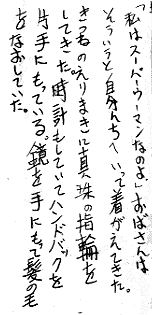 「私はスーパーウーマンなのよ」おばさんは
そういうと自分んちへいって着がえてきた。
きつねのえりまきに真珠の指輪を
してきた。時計もしていてハンドバックを
片手にもっている。鏡を手にもって髪の毛
をなおしていた。